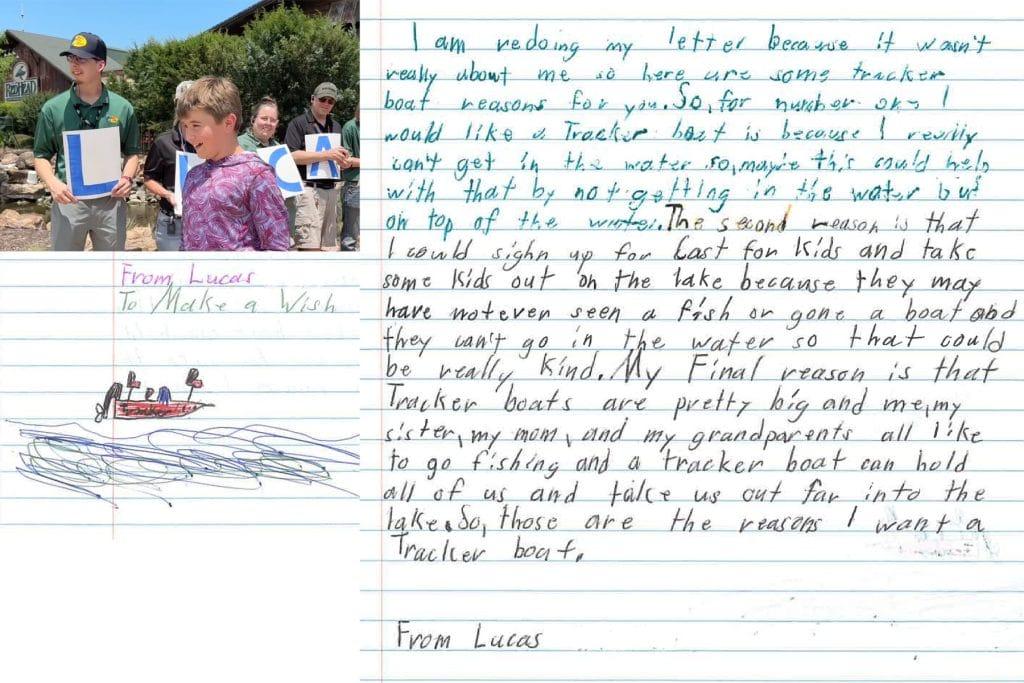 L
C
A
From Lucas
To Make a Wish
Tracker
I am redoing my letter because it wasn't
really about me so here are some tracker
boat reasons for you. So, for number one I
would like a Tracker boat is because I really
can't get in the water so, maybe this could help
with that by not getting in the water but
on top of the water. The second reason is that
I could sighn up for Cast for Kids and take
some Kids out on the lake because they may
have not ever seen a fish or gone a boat and
they can't go in the water so that could
be really Kind. My Final reason is that
Tracker boats are pretty big and me, my
sister, my mom, and my grandparents all like
to go fishing and a tracker boat can hold
all of us and take us out far into the
lake. So, those are the reasons I want a
Tracker boat.
From Lucas